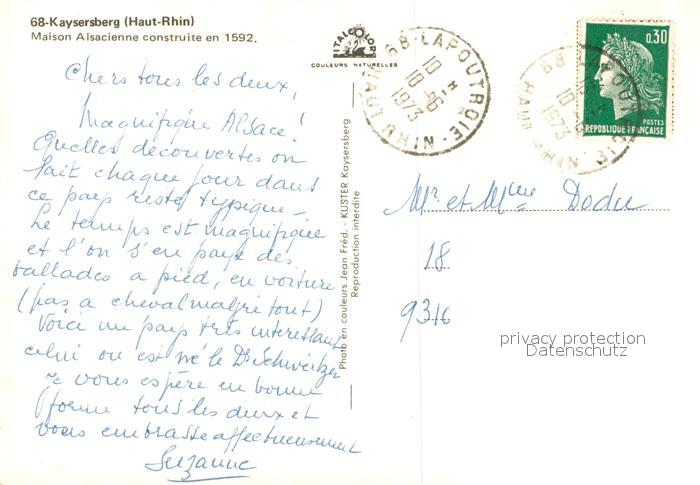 68-Kaysersberg (Haut-Rhin)
Maison Alsacienne construite en 1592.
ITALCOLOR
COULEURS NATURELLES
Chers tous les deux,
Magnifique Alsace!
Quelles découvertes on
fait chaque jour dans
ce pays resté typique -
Le temps est magnifique
et l'on s'en paye des
ballades a pied, en voiture
(pas a cheval malgré tout)
Voici un pays très interessant
celui ou est né le Dr Schweitzer
Je vous espère en bonne
forme tous les deux et
vous embrasse affectueusement
Suzanne
Photo en couleurs Jean Fréd. - KUSTER Kaysersberg
Reproduction interdite
68-LAPOUTROIE
HAUT-RHIN
10 H
10-6
1973
68-LAPOUTROIE
HAUT-RHIN
10
1973
0,30
POSTES
REPUBLIQUE FRANÇAISE
Mr et Mme Dodu
18
9316
privacy protection
Datenschutz